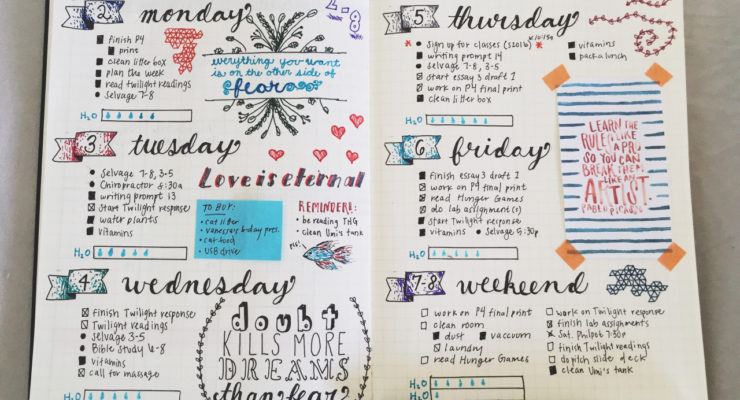 2 monday
2-8
finish P4
print
clean litter box
plan the week
read twilight readings
selvage 7-8
everything you want
is on the other side of
fear
H2O
3 tuesday
selvage 7-8, 3-5
chiropractor 4:30a
writing prompt 13
start Twilight response
water plants
vitamins
H2O
Love is eternal
TO BUY:
cat litter
vanessa's b-day prs.
cat food
USB driver
REMINDERS:
be reading THG
clean Umi's tank
pls!
4 wednesday
finish Twilight response
Twilight readings
selvage 3-5
Bible Study 6-8
vitamins
call for massage
H2O
doubt
KILLS MORE
DREAMS
than fear
5 thursday
sign up for classes (SS016)
writing prompt 14
selvage 7-8, 3-5
start essay 3 draft 1
work on P4 final print
clean litter box
vitamins
pack a lunch
H2O
6 friday
finish essay 3 draft 1
work on P4 final print
read Hunger Games
do lab assignment(s)
start Twilight response
vitamins
selvage 5:30p
H2O
LEARN THE
RULES LIKE
A PRO,
SO YOU CAN
BREAK THEM
LIKE AN
ARTIST.
PABLO PICASSO
7-8 weekend
work on P4 final print
clean room
dust
vaccuum
laundry
read Hunger Games
work on Twilight response
finish lab assignments
Sat. Philpot 7:30p
finish Twilight readings
do pitch slide deck
clean Umi's tank
H2O
H2O